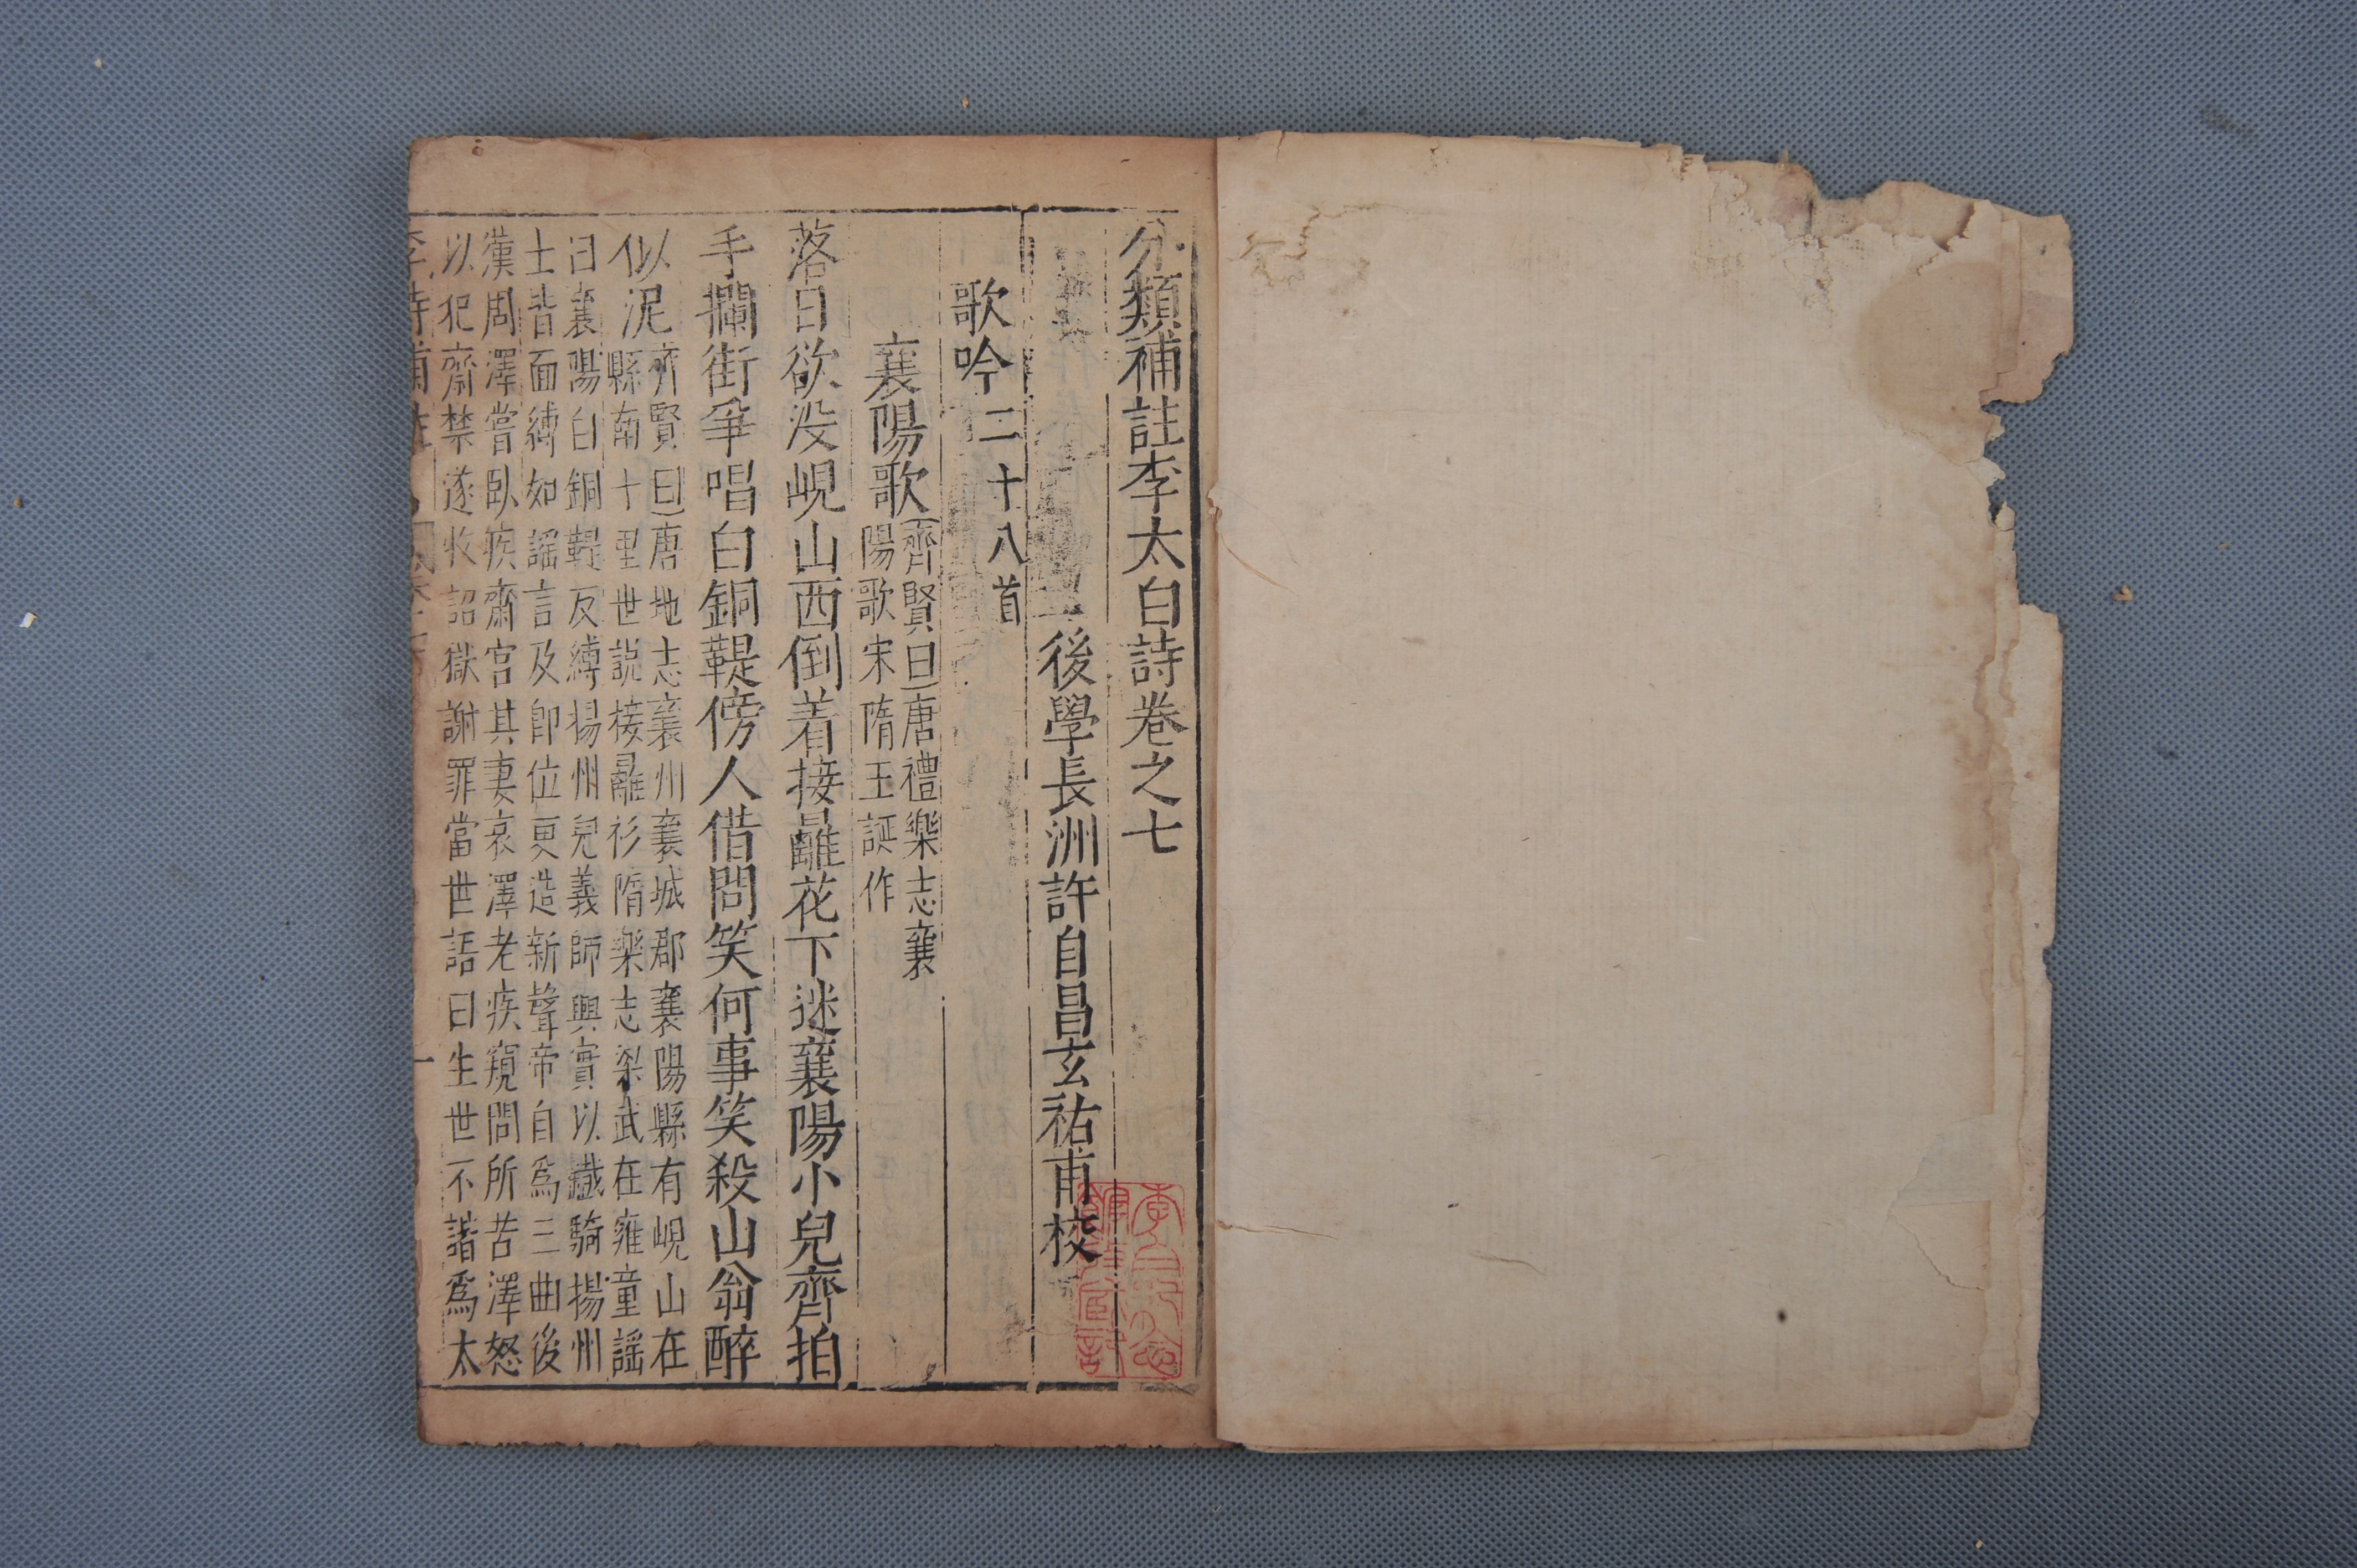 分類補註李太白詩卷之七
後學長洲許自昌玄祐甫校
歌吟二十八首
襄陽歌
齊賢曰唐禮樂志襄
陽歌宋隋王誕作
落日欲没峴山西倒着接䍦花下迷襄陽小兒齊拍
手攔街爭唱白銅鞮傍人借問笑何事笑殺山翁醉
似泥
齊賢曰唐地志襄州襄城郡襄陽縣有峴山在
縣南十里世説接䍦衫隋樂志梁武在雍童謡
曰襄陽白銅鞮反縛揚州兒義師興實以鐵騎揚州
士皆面縛如謡言及卽位更造新聲帝自爲三曲後
漢周澤嘗臥疾齋宫其妻哀澤老疾窺問所苦澤怒
以犯齋禁遂收詔獄謝罪當世語曰生世不諧爲太